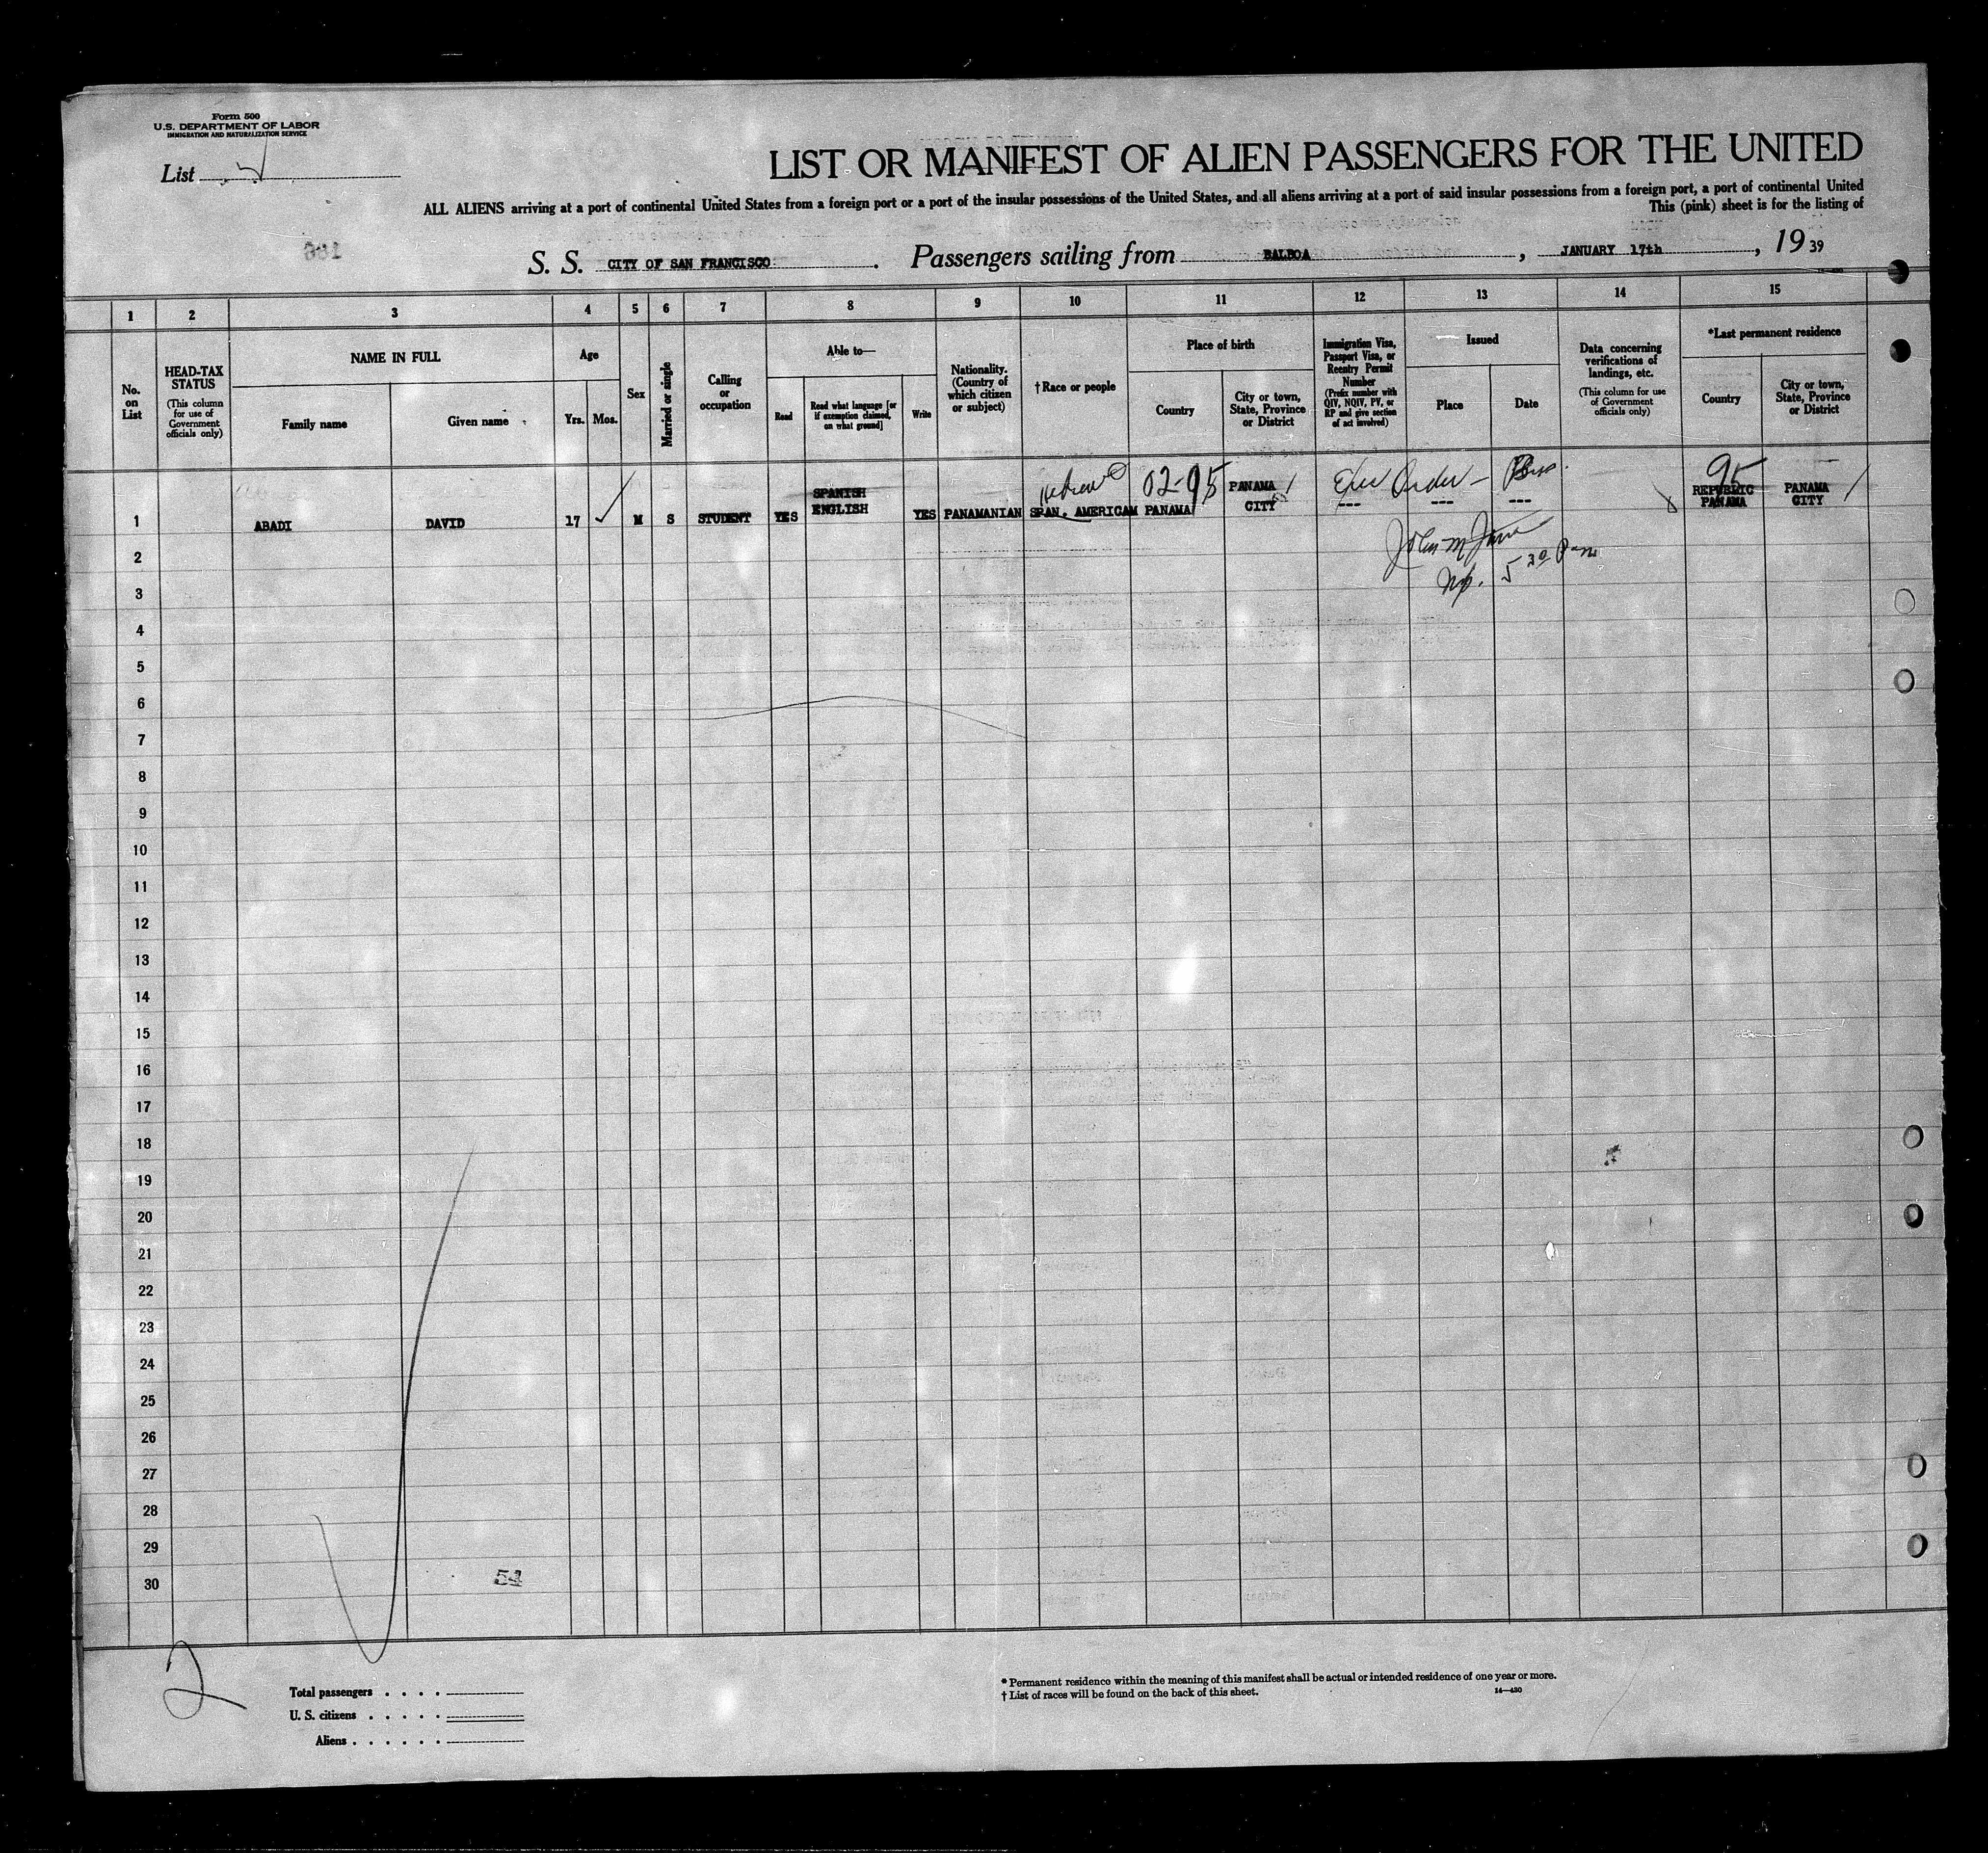 Form 500
U.S. DEPARTMENT OF LABOR
IMMIGRATION AND NATURALIZATION SERVICE
List
LIST OR MANIFEST OF ALIEN PASSENGERS FOR THE UNITED
ALL ALIENS arriving at a port of continental United States from a foreign port or a port of the insular possessions of the United States, and all aliens arriving at a port of said insular possessions from a foreign port, a port of continental United
This (pink) sheet is for the listing of
S. S. CITY OF SAN FRANCISCO. Passengers sailing from BALBOA, JANUARY 17th, 19 39
1 2 3 4 5 6 7 8 9 10 11 12 13 14 15
No. on List
HEAD-TAX STATUS
(This column for use of Government officials only)
NAME IN FULL
Family name
Given name
Age
Yrs. Mos.
Sex
Married or single
Calling or occupation
Able to—
Read
Read what language [or if exemption claimed, on what ground]
Write
Nationality. (Country of which citizen or subject)
†Race or people
Place of birth
Country
City or town, State, Province or District
Immigration Visa, Passport Visa, or Reentry Permit Number
(Prefix number with QIV, NQIV, PV, or RP and give section of act involved)
Issued
Place
Date
Data concerning verifications of landings, etc.
(This column for use of Government officials only)
*Last permanent residence
Country
City or town, State, Province or District
Hebrew 02-95 Exec Order - 95
1 ABADI DAVID 17 M S STUDENT YES SPANISH ENGLISH YES PANAMANIAN SPAN. AMERICAN PANAMA PANAMA CITY --- --- --- REPUBLIC PANAMA PANAMA CITY
2
3
4
5
6
7
8
9
10
11
12
13
14
15
16
17
18
19
20
21
22
23
24
25
26
27
28
29
30
54
2
Total passengers
U. S. citizens
Aliens
* Permanent residence within the meaning of this manifest shall be actual or intended residence of one year or more.
† List of races will be found on the back of this sheet.
14—430